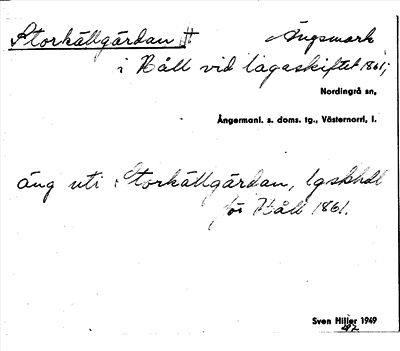 Storkällgärdan # Ängsmark
i Håll vid lagaskiftet 1861,
Nordingrå sn,
Ångermanl. s. doms. tg., Västernorrl, l.
äng uti Storkällgärdan, lgskhdl
för Håll 1861.
Sven Hiller 1949